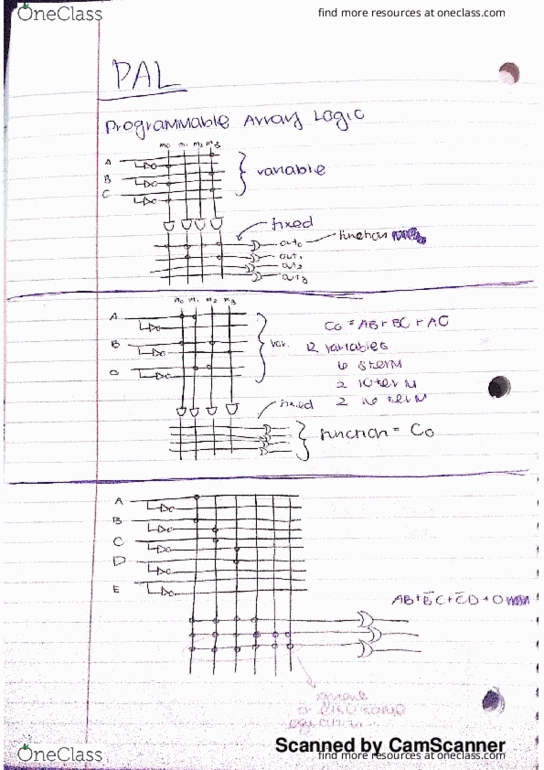 OneClass
find more resources at oneclass.com
PAL
Programmable Array Logic
m₀ m₁ m₂ m₃
A
B
C
variable
fixed
out₀
function
out₁
out₂
out₃
m₀ m₁ m₂ m₃
A
B
C
var.
C₀ = AB + BC + AC
12 variables
6 8term
2 10term
2 16term
fixed
function = C₀
A
B
C
D
E
AB+B̅C+C̅D+0
OneClass
Scanned by CamScanner
find more resources at oneclass.com